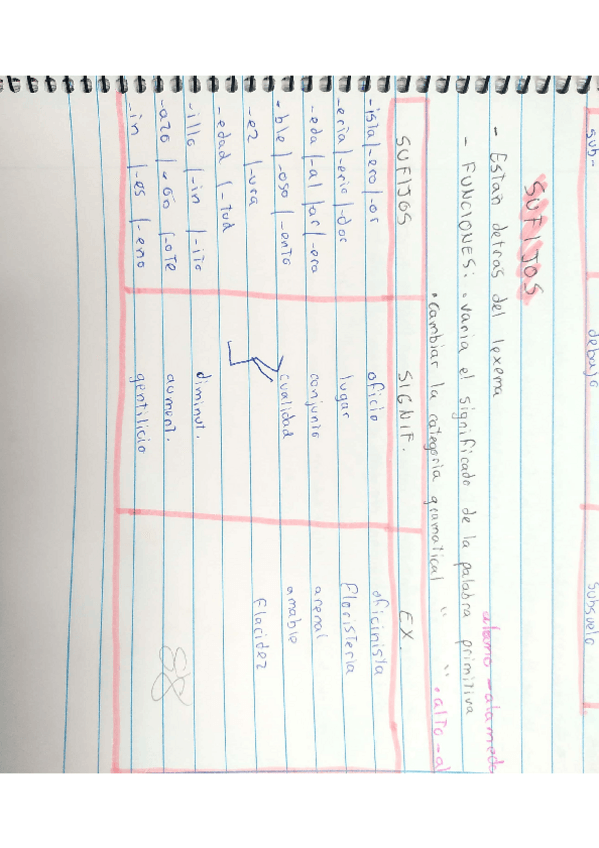 sub- debajo subsuelo
SUFIJOS
- Están detras del lexema
alamo - alameda
- FUNCIONES: · varia el significado de la palabra primitiva
· cambiar la categoria gramatical " " · alto - al
SUFIJOS SIGNIF. EX.
-ista/-ero/-or oficio oficinista
-eria/-erio/-dor lugar floristeria
-eda/-al/ar/-era conjunto arenal
-ble/-oso/-ento cualidad amable
-ez/-ura flacidez
-edad/-tud
-illo/-in/-ito diminut.
-azo/-ón/-ote aument.
-in/-es/-eno gentilicio